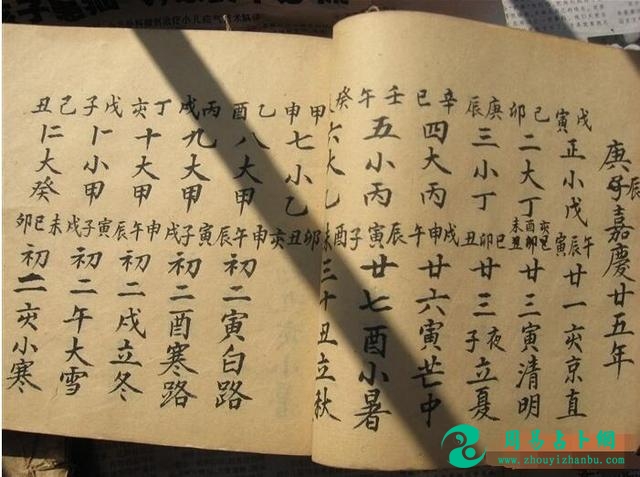 庚子辰嘉慶廿五年
戊寅正小戊午辰寅廿一亥京直
己卯二大丁廿三寅清明
庚辰三小丁巳卯丑廿三夜子立夏
辛巳四大丙戌申午廿六寅芒中
壬午五小丙辰寅子廿七酉小暑
癸六大乙酉未三十丑立秋
甲申七小乙卯丑亥
乙酉八大甲申午辰初二寅白路
丙戌九大甲寅子戌初二酉寒路
丁亥十大甲申午辰初二戌立冬
戊子卜小甲寅子戌初二午大雪
己丑仁大癸未巳卯初二亥小寒
周易占卜網
www.zhouyizhanbu.com